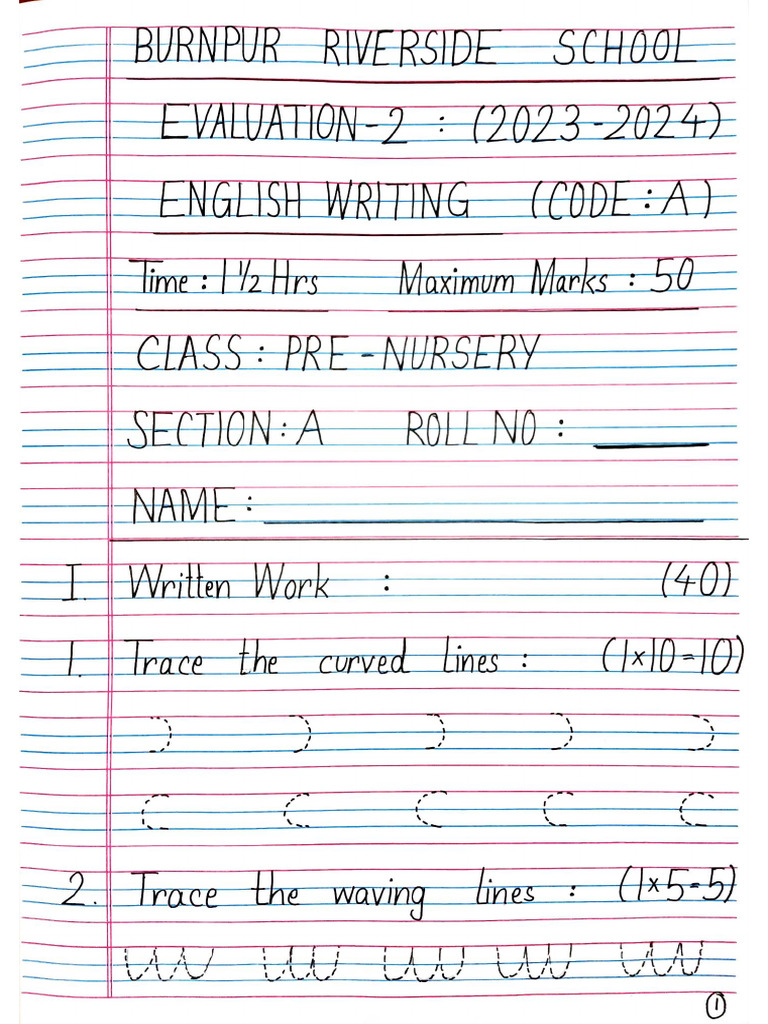 BURNPUR RIVERSIDE SCHOOL
EVALUATION-2 : (2023-2024)
ENGLISH WRITING (CODE : A)
Time : 1 1/2 Hrs Maximum Marks : 50
CLASS : PRE-NURSERY
SECTION : A ROLL NO :
NAME :
I. Written Work : (40)
1. Trace the curved lines : (1×10=10)
2. Trace the waving lines : (1×5=5)
1